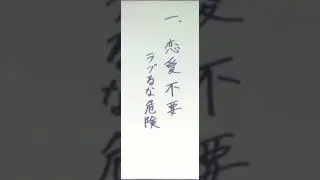 一、恋愛不要
ラブるな危険